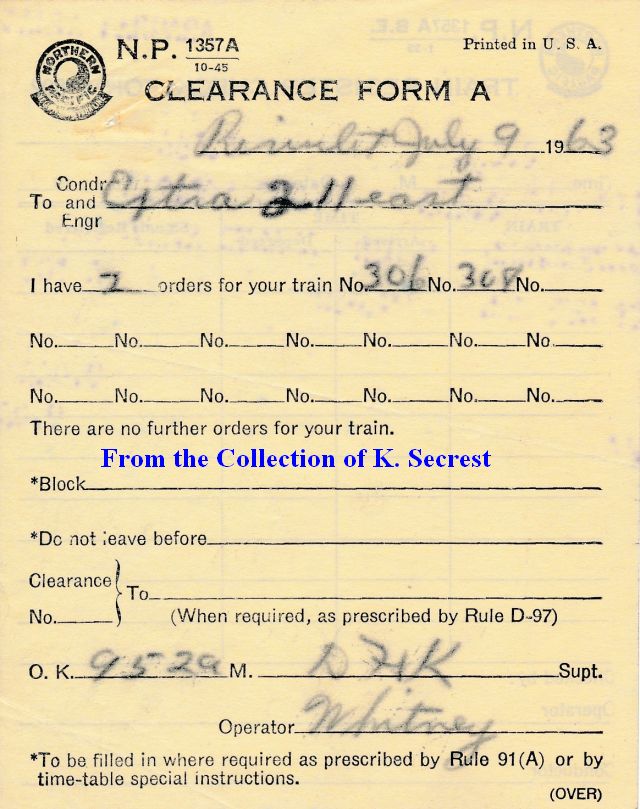 NORTHERN PACIFIC
N.P. 1357A
10-45
Printed in U. S. A.
CLEARANCE FORM A
July 9 1963
Condr
To and Extra 211 east
Engr
I have 2 orders for your train No. 306 No. 308 No.
No. No. No. No. No. No. No.
No. No. No. No. No. No. No.
There are no further orders for your train.
From the Collection of K. Secrest
*Block
*Do not leave before
Clearance
To
No. (When required, as prescribed by Rule D-97)
O. K. 952a M. DHK Supt.
Operator Whitney
*To be filled in where required as prescribed by Rule 91(A) or by
time-table special instructions.
(OVER)